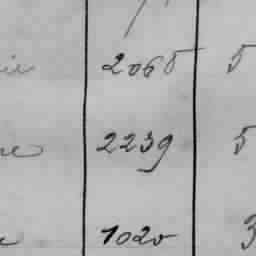 2065 5
2239 5
1020 3